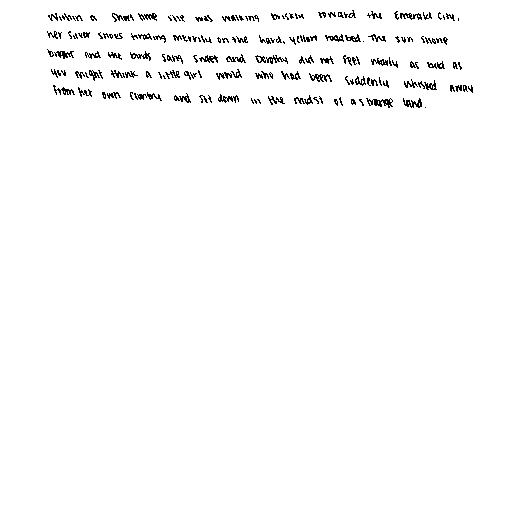 Within a short time she was walking briskly toward the Emerald City,
her silver shoes tinkling merrily on the hard, yellow roadbed. The sun shone
bright and the birds sang sweet and Dorothy did not feel nearly as bad as
you might think a little girl would who had been suddenly whisked away
from her own country and sit down in the midst of a strange land.